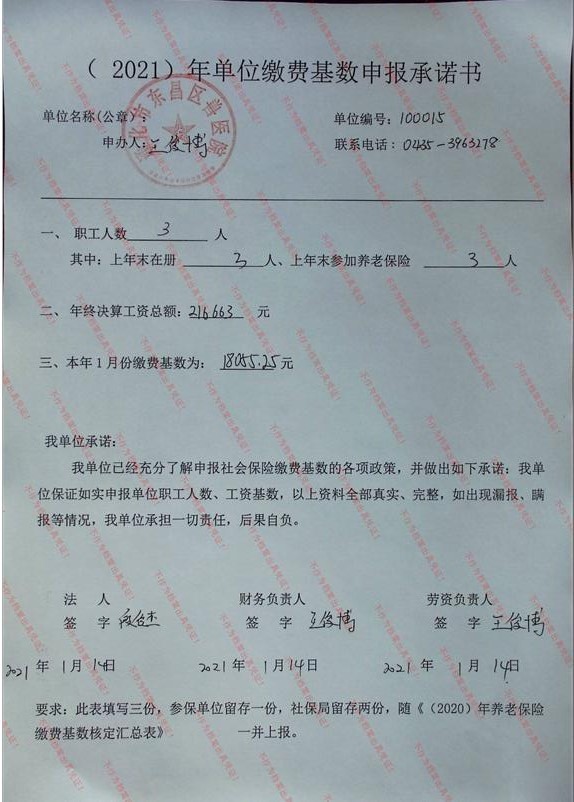 （ 2021）年单位缴费基数申报承诺书
单位名称(公章)：
单位编号：100015
申办人：王俊博
联系电话：0435-3963278
市东昌区兽医院
一、 职工人数 3 人
其中：上年末在册 3 人、上年末参加养老保险 3 人
二、年终决算工资总额：216663 元
三、本年1月份缴费基数为： 18055.25 元
我单位承诺：
我单位已经充分了解申报社会保险缴费基数的各项政策，并做出如下承诺：我单
位保证如实申报单位职工人数、工资基数，以上资料全部真实、完整，如出现漏报、瞒
报等情况，我单位承担一切责任，后果自负。
法 人 财务负责人 劳资负责人
签 字 签 字 王俊博 签 字 王俊博
2021 年 1月 14日 2021 年 1月14日 2021 年 1月 14日
要求：此表填写三份，参保单位留存一份，社保局留存两份，随《（2020）年养老保险
缴费基数核定汇总表》 一并上报。